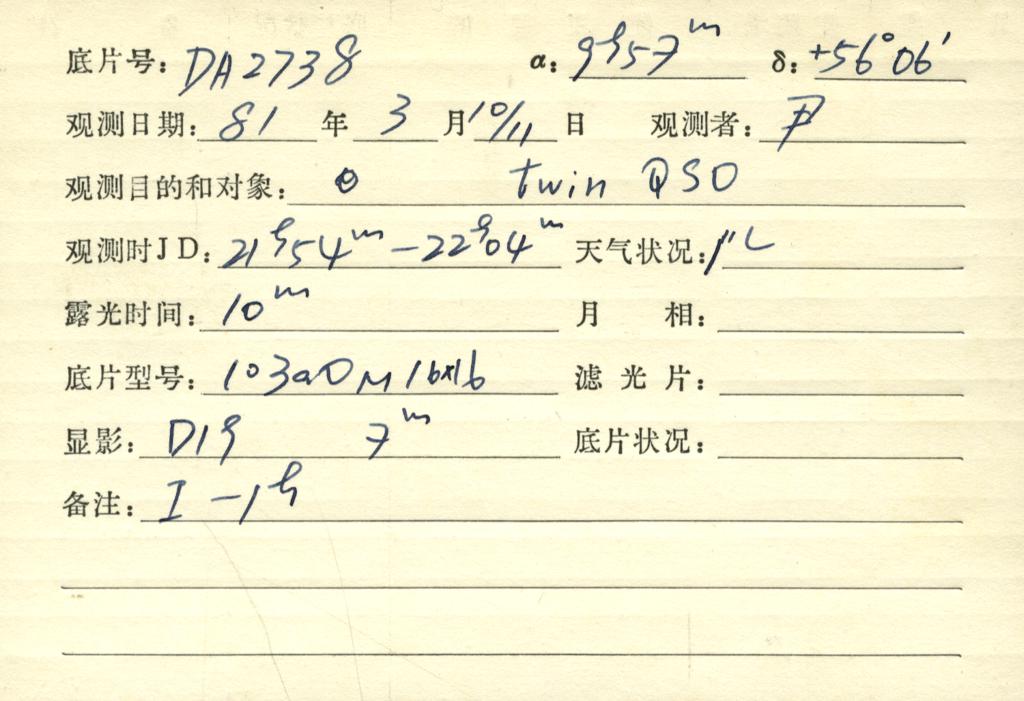 底片号: DA2738 α: 9h57m δ: +56°06′
观测日期: 81 年 3 月 10/11 日 观测者:
观测目的和对象: twin QSO
观测时JD: 21h54m-22h04m 天气状况:
露光时间: 10m 月 相:
底片型号: 103aO M 16x16 滤光片:
显影: D19 7m 底片状况:
备注: I-1h